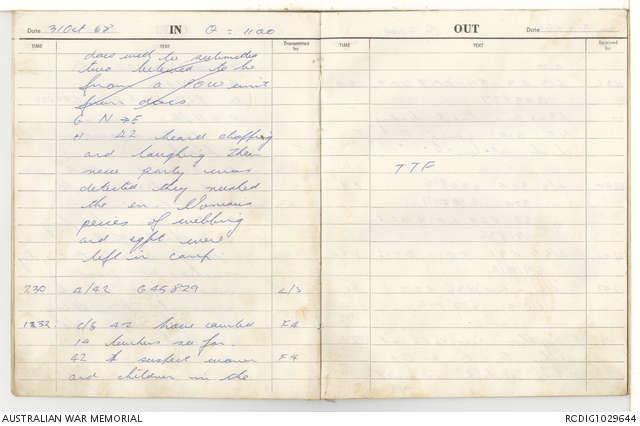 Date 31 Oct 68 IN Q = 1100
TIME TEXT Transmitted by
docs used to
two believed to be
from a POW unit
from docs
G N → E
H 42 heard chopping
and laughing then
new party was
detected they rushed
the en.
pieces of webbing
and eqpt were
left in camp.
730 A/42 G45829 2/3
1232 c/s 42 have counted F4
14 bunkers so far.
42 suspect women F4
and children in the
OUT Date
TIME TEXT Received by
TTF
AUSTRALIAN WAR MEMORIAL RCDIG1029644